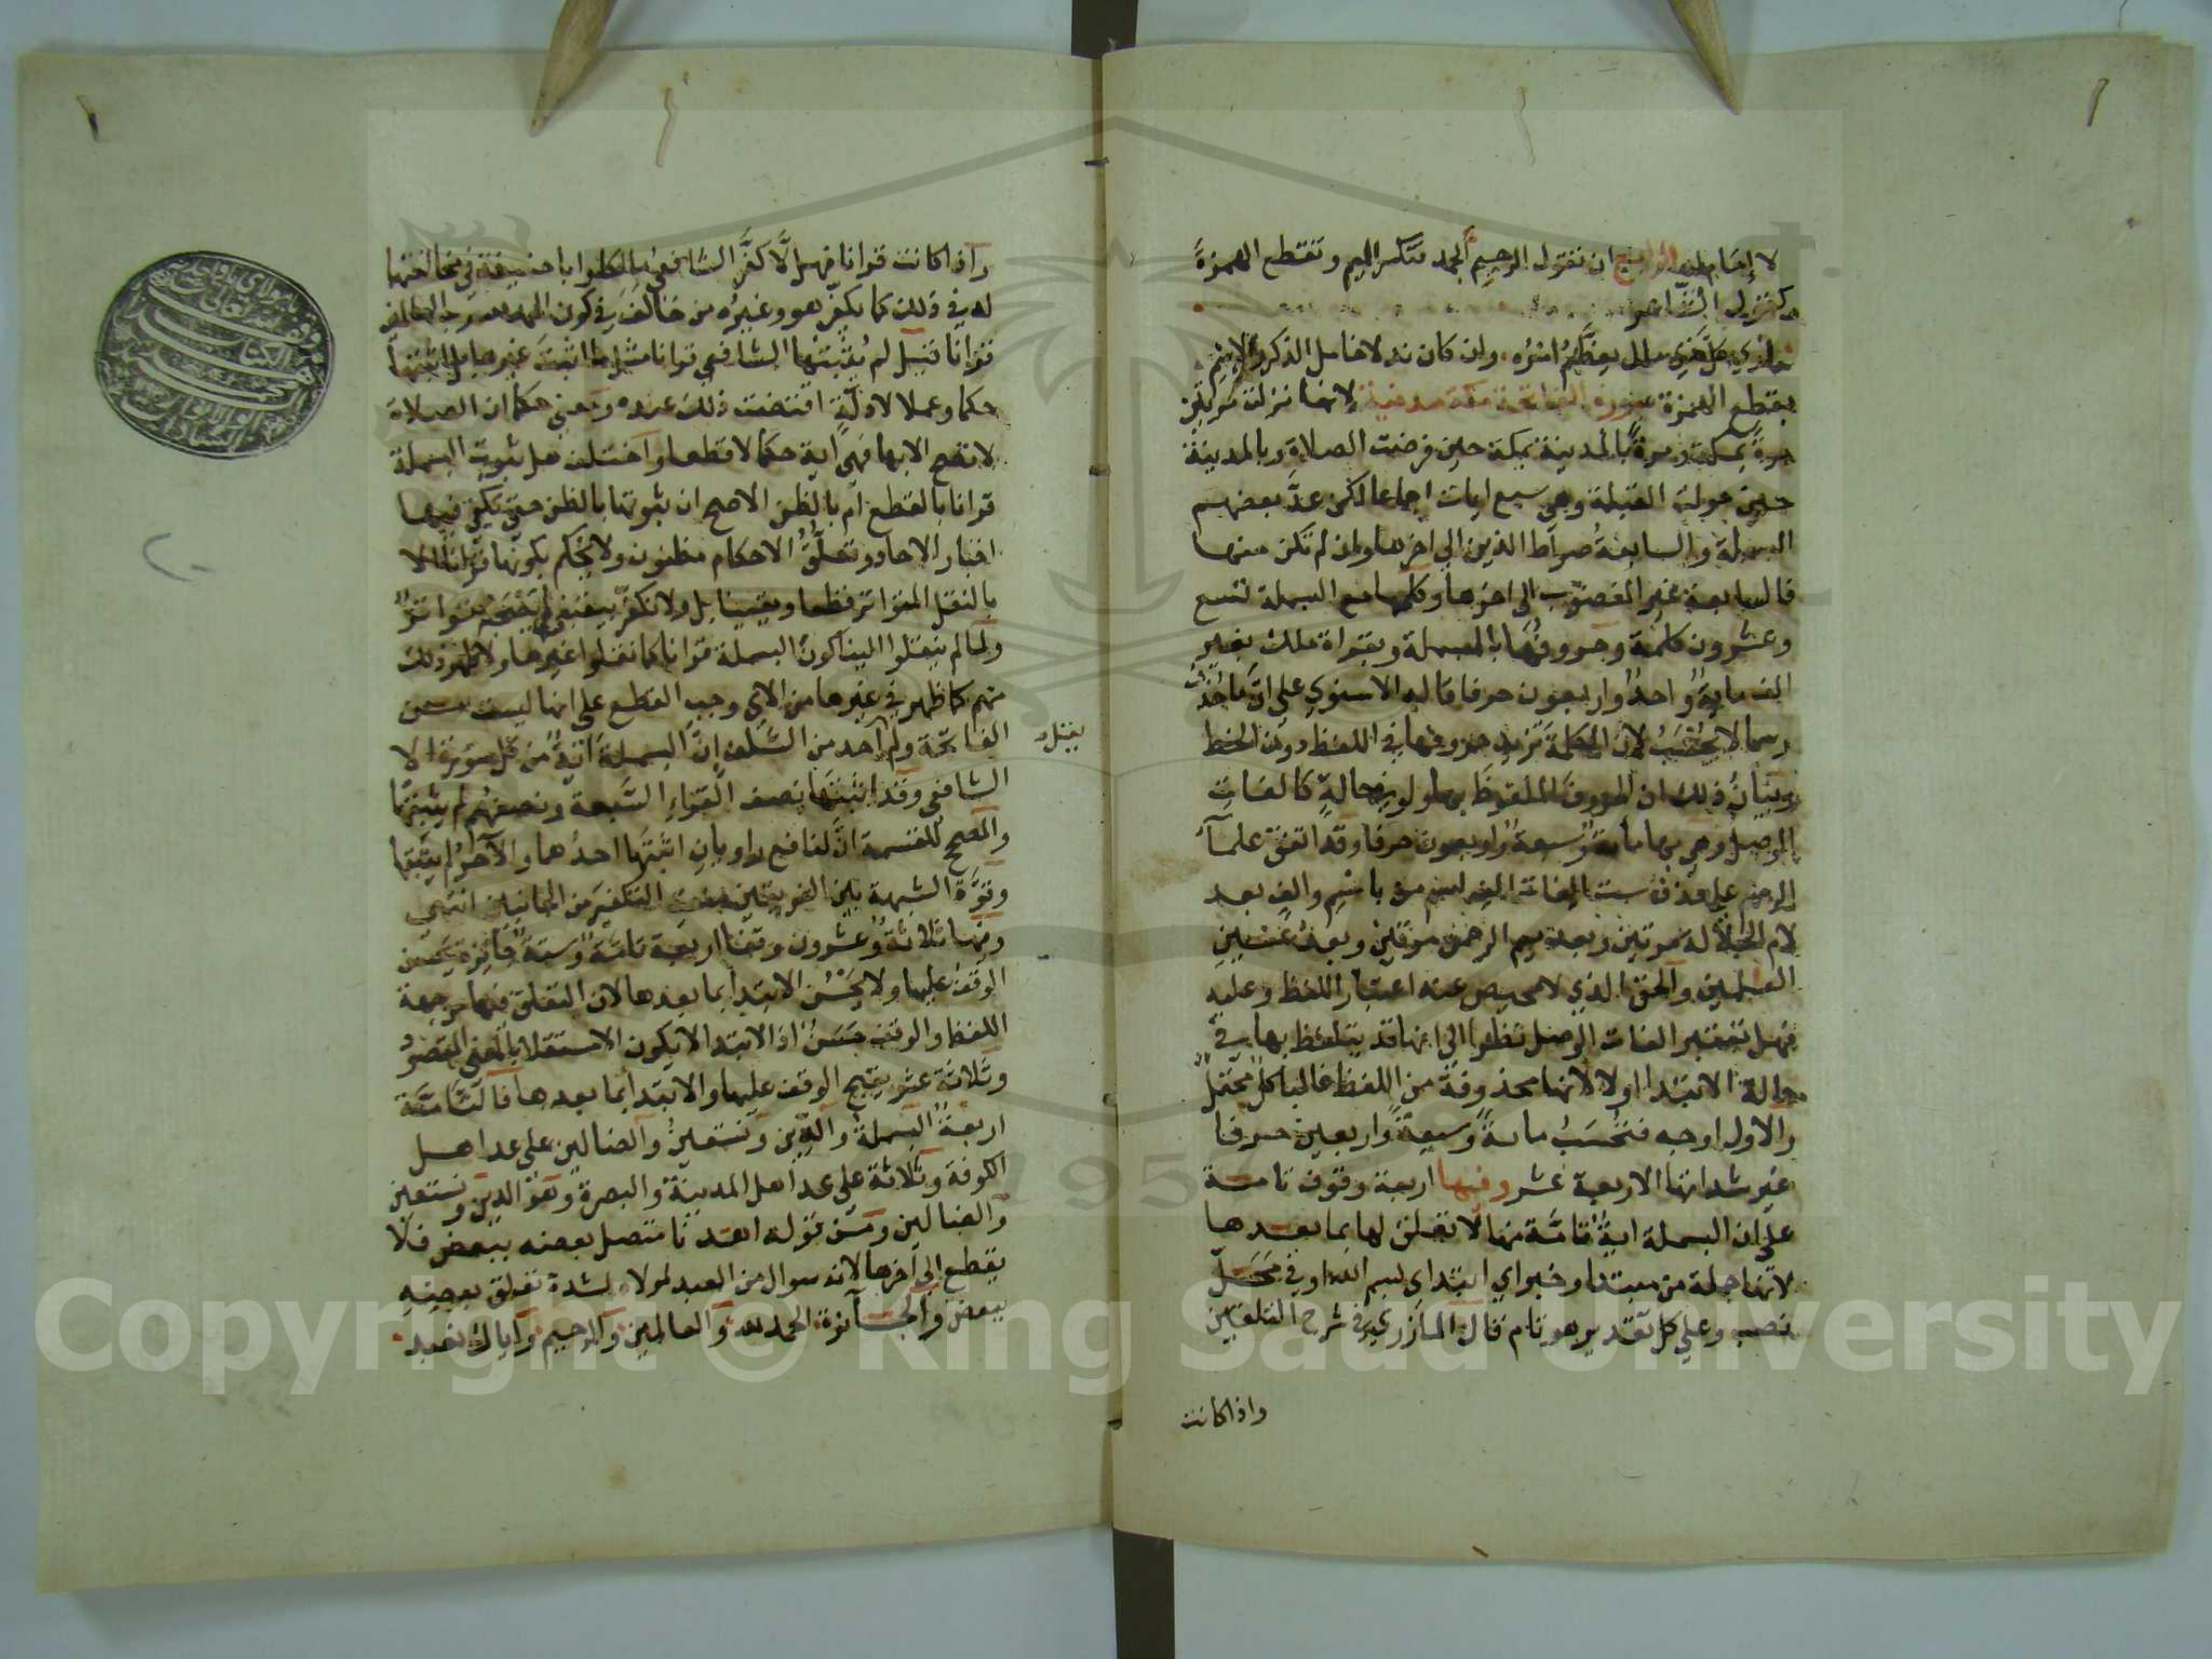 ان تقول الرحيم الحمد بكسر الميم وتقطع الهمزة
كقول الشاعر
وان كان ندلا خامل الذكر والاسم
بقطع الهمزة سورة الفاتحة مكية مدنية لانها نزلت مرتين
مرة بمكة ومرة بالمدينة بمكة حين فرضت الصلاة وبالمدينة
حين حولت القبلة وهي سبع ايات اجماعا لكن عد بعضهم
البسملة والسابعة صراط الذين الى اخرها وان لم تكن منها
فالسابعة غير المغضوب الى اخرها وكلمها مع البسملة تسع
وعشرون كلمة وحروفها بالبسملة وبقراءة ملك بغير
الف ماية واحد واربعون حرفا قاله الاسنوي على ان ما حذف
رسما لا يحسب لان الكلمة تزيد حروفها في اللفظ دون الخط
وبيان ذلك ان الحروف الملفوظ بها ولو في حالة كالفات
الوصل وهي بها ماية وسبعة واربعون حرفا وقد اتفق علماء
الرسم على حذف ست الفات الف اسم من باسم والف بعد
لام الجلالة مرتين وبعد ميم الرحمن مرتين وبعد عين
العلمين والحق الذي لا محيص عنه اعتبار اللفظ وعليه
فهل تعتبر الفات الوصل نظرا الى انها قد يتلفظ بها في
حالة الابتدا اولا لانها محذوفة من اللفظ غالبا كل محتمل
والاول اوجه فتحسب ماية وسبعة واربعين حرفا
غير شداتها الاربعة عشر وفيها اربعة وقوف تامة
على ان البسملة اية تامة منها لا تعلق لها بما بعدها
لانها جملة من مبتدا وخبر اي ابتداي بسم الله او في محل
نصب وعلى كل تقدير هو تام قال المازري في شرح التلقين
واذا كانت
واذا كانت قرانا فهلا كفر الشافعي مالكا وابا حنيفة في مخالفتهما
له في ذلك كما يكفر هو وغيره من خالف في كون الحمد لله رب العالمين
قرانا قيل لم يثبتها الشافعي قرانا مثل ما اثبت غيرها بل اثبتها
حكما وعملا لادلة اقتضت ذلك عنده ومعنى حكما ان الصلاة
لا تصح الا بها فهي اية حكما لا قطعا واختلف هل ثبوت البسملة
قرانا بالقطع ام بالظن الاصح ان ثبوتها بالظن حتى يكفي فيها
اخبار الاحاد وتعلق الاحكام مظنون ولا يحكم بكونها قرانا الا
بالنقل المتواتر قطعا ويقينا بل ولا نكفر بيقيني لم يصحبه تواتر
ولما لم ينقلوا الينا كون البسملة قرانا كما نقلوا غيرها ولا ظهر ذلك
منهم كما ظهر في غيرها من الاي وجب القطع على انها ليست من
الفاتحة ولم احد من السلف ان البسملة اية من كل سورة الا
يقل
الشافعي وقد اثبتها نصف القراء السبعة ونصفهم لم يثبتها
والمصحح للقسمة ان لنافع راويان اثبتها احدهما والاخر لم يثبتها
وقوة الشبهة بين الفريقين منعت التكفير من الجانبين انتهى
ومنها ثلاثة وعشرون وقفا اربعة تامة وستة جايزة يحسن
الوقف عليها ولا يحسن الابتدا بما بعدها لان التعلق فيها من جهة
اللفظ والوقف حسن اذ الابتدا لا يكون الا مستقلا بالمعنى المقصود
وثلاثة عشر يقبح الوقف عليها والابتدا بما بعدها فالتامة
اربعة البسملة والدين ونستعين والضالين على عد اهل
الكوفة وثلاثة على عد اهل المدينة والبصرة وهو الدين ونستعين
والضالين ومن قوله اهدنا متصل بعضه ببعض فلا
يقطع الى اخرها لانه سوال من العبد لمولاه لشدة تعلق بعضه
ببعض والجايزة الحمد لله والعالمين والرحيم واياك نعبد
Copyright © King Saud University
195